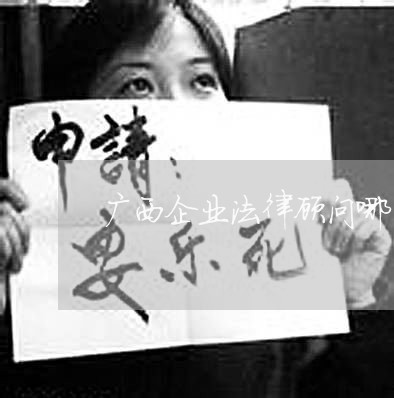 申請：
广西企业法律顾问哪
安乐死